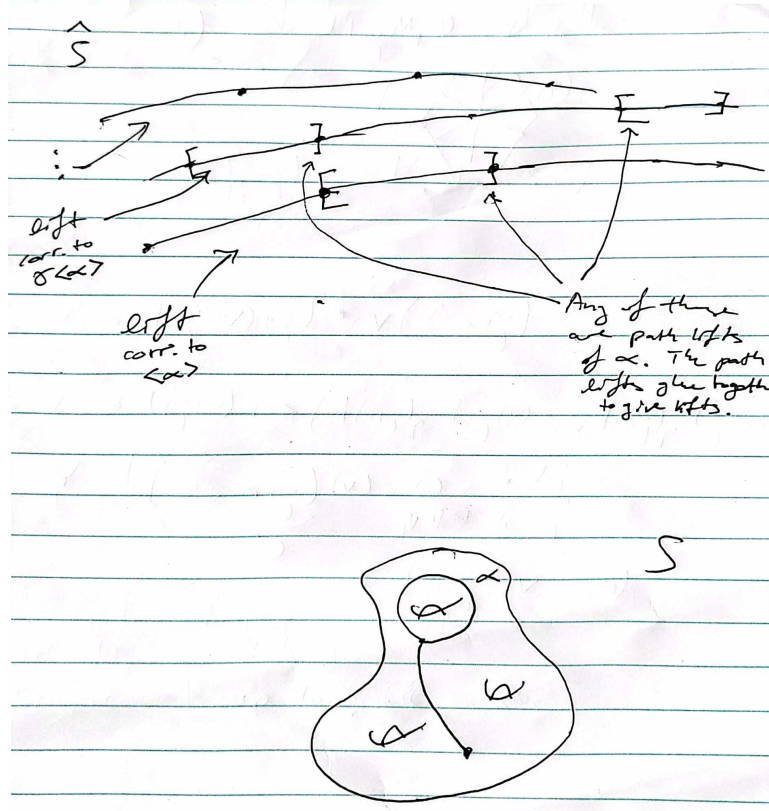 Ŝ
lift
corr. to
γ<α>
lift
corr. to
<α>
Any of these
are path lifts
of α. The path
lifts glue togeth
to give lifts.
S
α